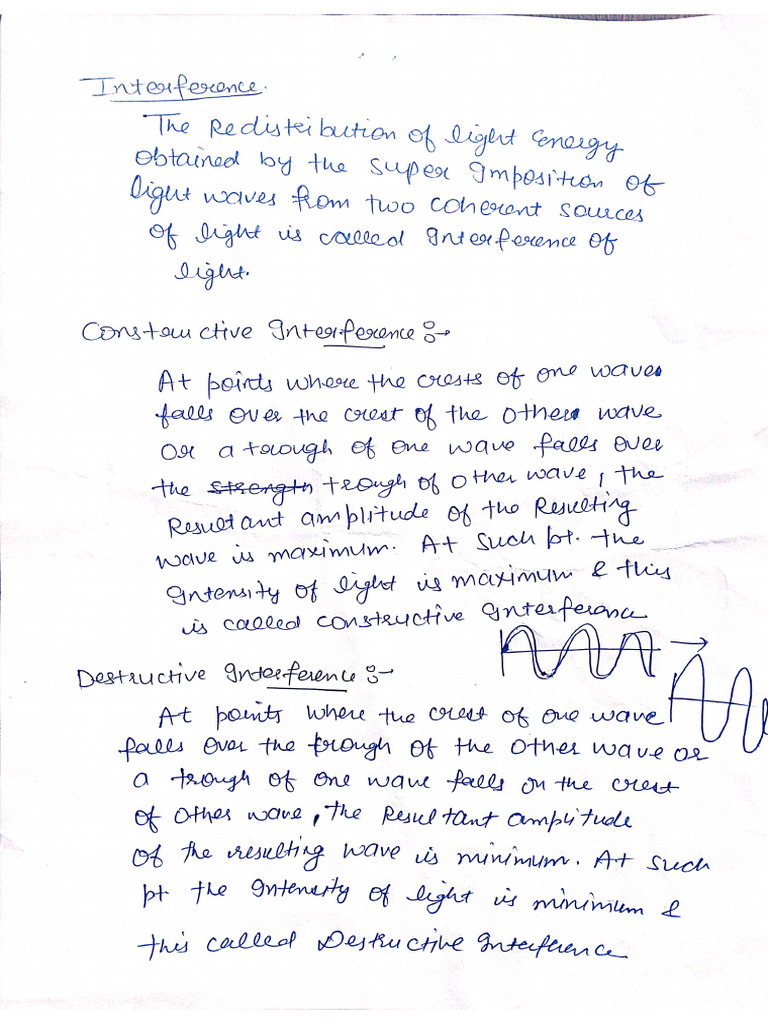 Interference.
The Redistribution of light Energy
obtained by the super Imposition of
light waves from two coherent sources
of light is called Interference of
light.
Constructive Interference :→
At points where the crests of one waves
falls over the crest of the other wave
or a trough of one wave falls over
the strength trough of other wave, the
Resultant amplitude of the Resulting
wave is maximum. At such pt. the
Intensity of light is maximum & this
is called constructive Interference
Destructive Interference :→
At points where the crest of one wave
falls over the trough of the other wave or
a trough of one wave falls on the crest
of other wave, the Resultant amplitude
of the resulting wave is minimum. At such
pt the Intensity of light is minimum &
this called Destructive Interference